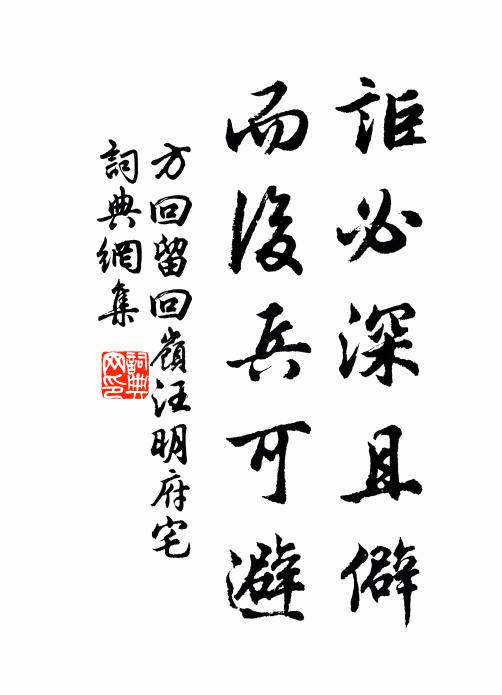 詎必深且僻
而後兵可避
方回留回嶺汪明府宅
詞典網集
詞典
网印